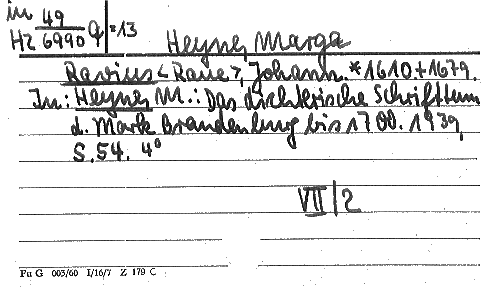 in 49
Hz 6990 q =13
Heyne, Marga
Ravius <Raue>, Johann. *1610+1679.
In: Heyne, M.: Das dichterische Schrifttum
d. Mark Brandenburg bis 1700. 1939,
S. 54. 4°
VII/2
Fu G 003/60 I/16/7 Z 179 C